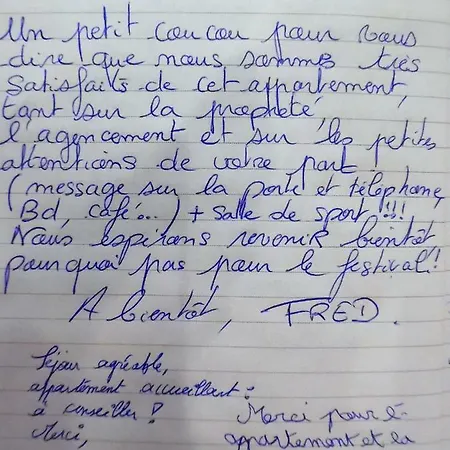 Un petit coucou pour vous
dire que nous sommes très
satisfaits de cet appartement,
tant sur la propreté
l'agencement et sur les petites
attentions de votre part
(message sur la porte et téléphone,
Bd, café...) + salle de sport !!!!
Nous espérons revenir bientôt,
pourquoi pas pour le festival!
A bientôt, FRED.
Séjour agréable,
appartement accueillant :
à conseiller !
Merci,
Merci pour l'
appartement et la